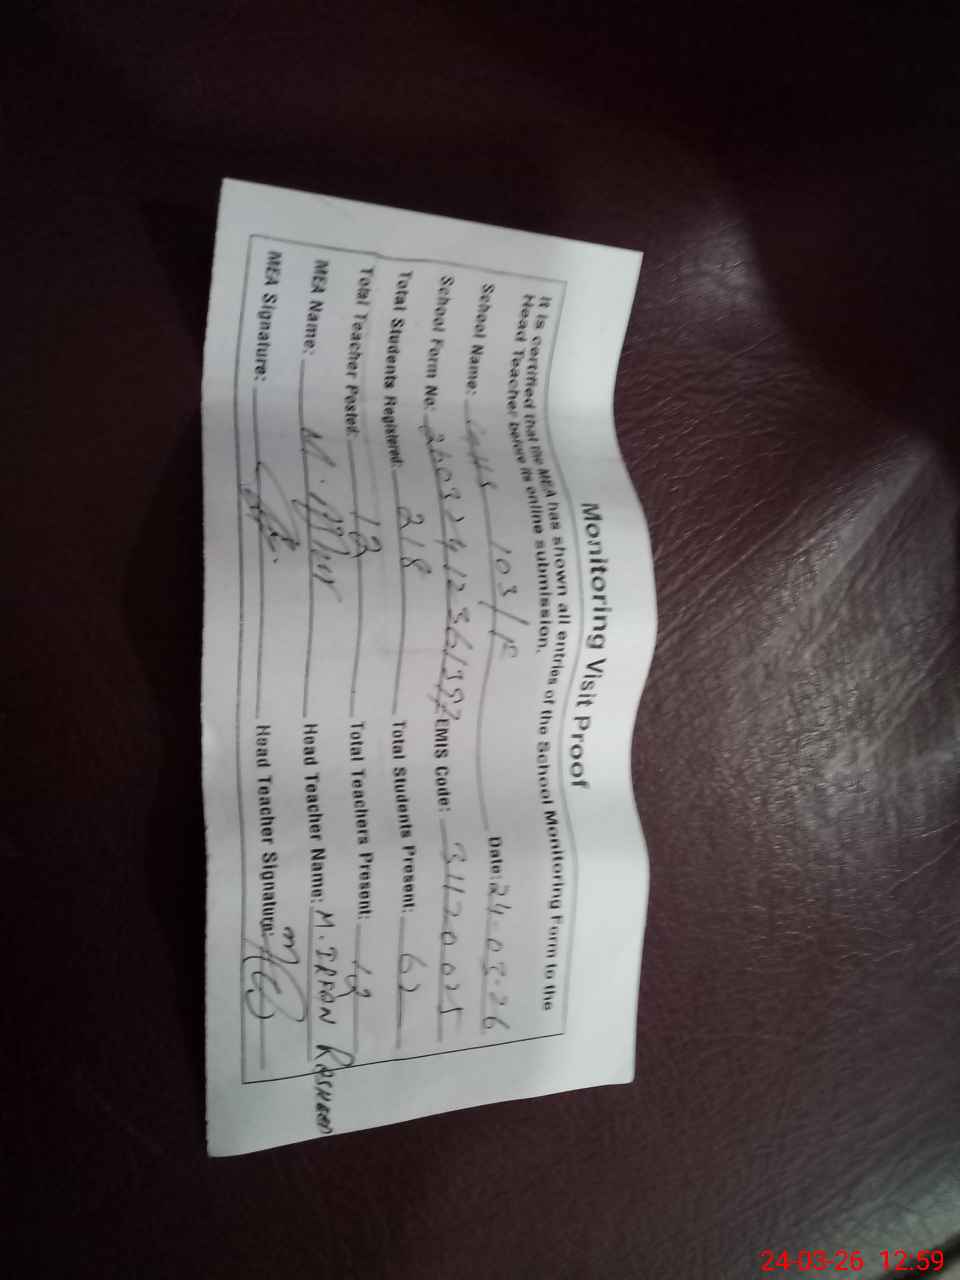 Monitoring Visit Proof
It is certified that the MEA has shown all entries of the School Monitoring Form to the
Head Teacher before its online submission.
School Name: 103/ Date: 24-03-26
School Form No: EMIS Code: 31120025
Total Students Registered: 218 Total Students Present: 62
Total Teacher Posted: 12 Total Teachers Present: 12
MEA Name: M. Head Teacher Name: M. IRFAN RASHEED
MEA Signature: Head Teacher Signature:
24-03-26 12:59